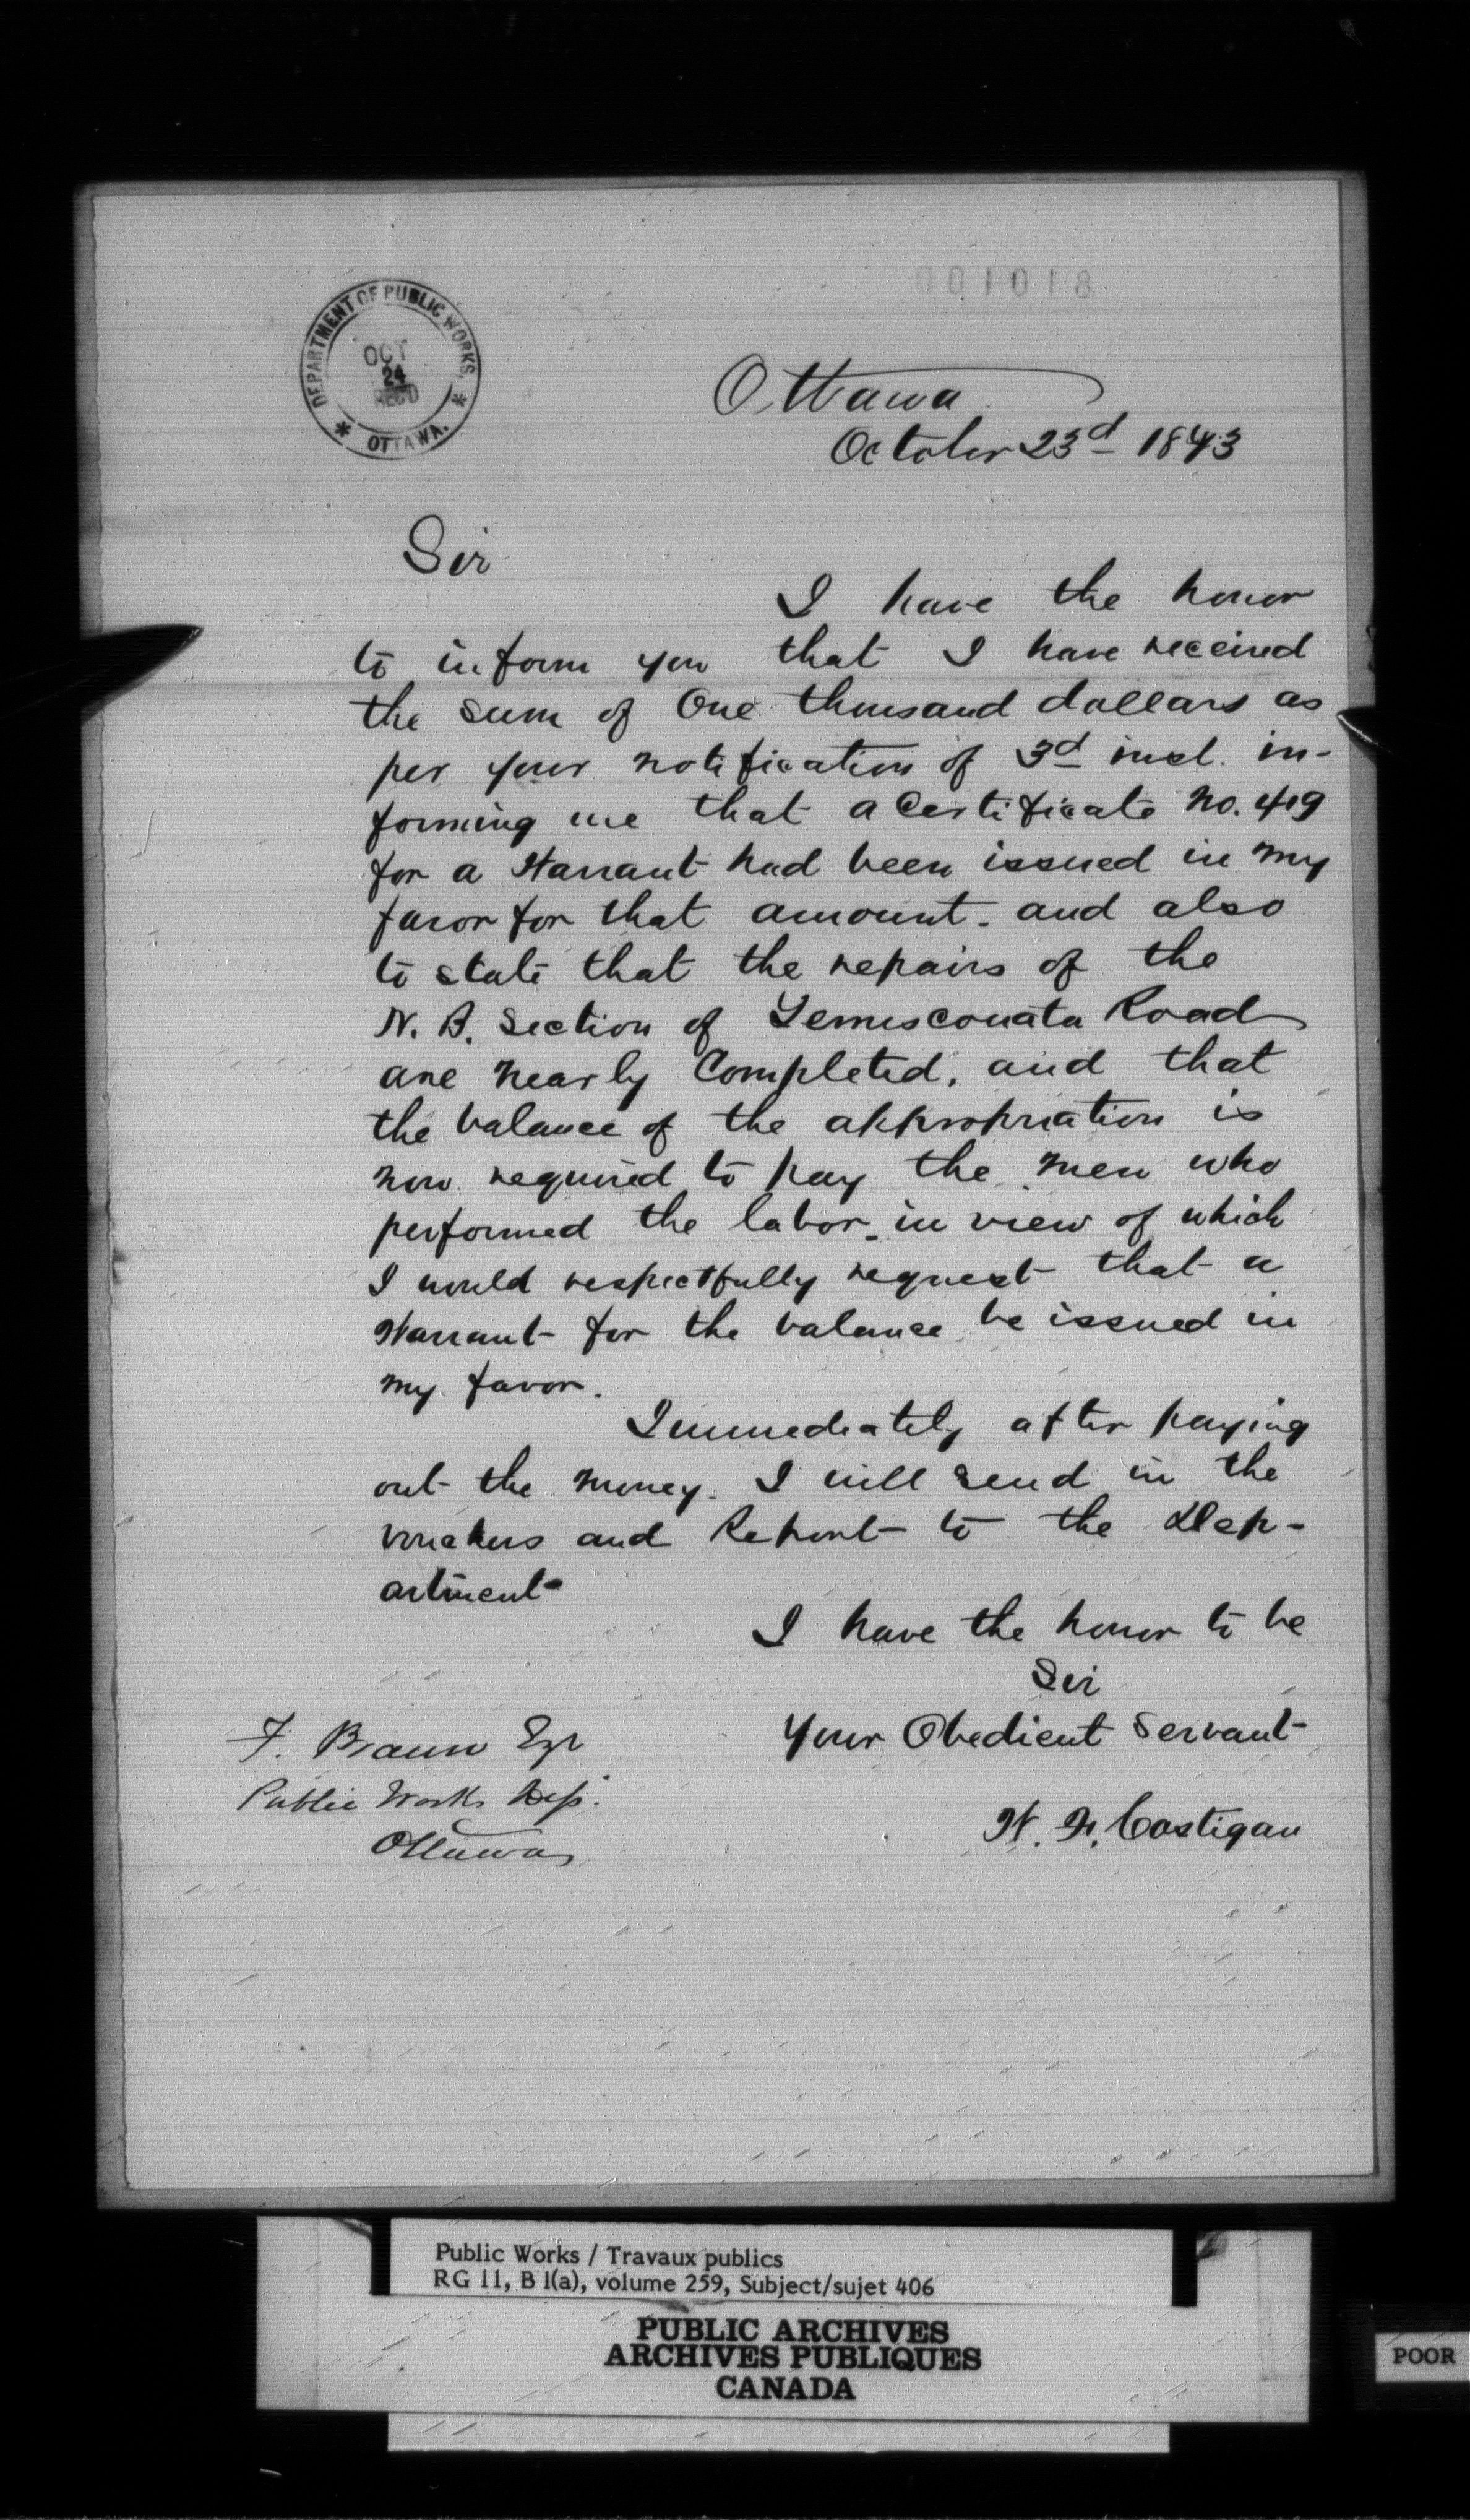 001018
DEPARTMENT OF PUBLIC WORKS,
OCT
24
REC'D
* OTTAWA. *
Ottawa
October 23d 1873
Sir
I have the honor
to inform you that I have received
the sum of One thousand dollars as
per your notification of 3d inst. in-
forming me that a Certificate No. 419
for a Warrant had been issued in my
favor for that amount. and also
to state that the repairs of the
N. B. Section of Temisconata Road
are nearly Completed, and that
the balance of the appropriation is
now required to pay the men who
performed the labor - in view of which
I would respectfully request that a
Warrant for the balance be issued in
my favor.
Immediately after paying
out the money. I will send in the
vouchers and Report to the Dep-
artment
I have the honor to be
Sir
Your Obedient Servant
F. Braun Esqr
Public Works Dep.
Ottawa
H. F. Costigan
Public Works / Travaux publics
RG 11, B 1(a), volume 259, Subject/sujet 406
PUBLIC ARCHIVES
ARCHIVES PUBLIQUES
CANADA
POOR